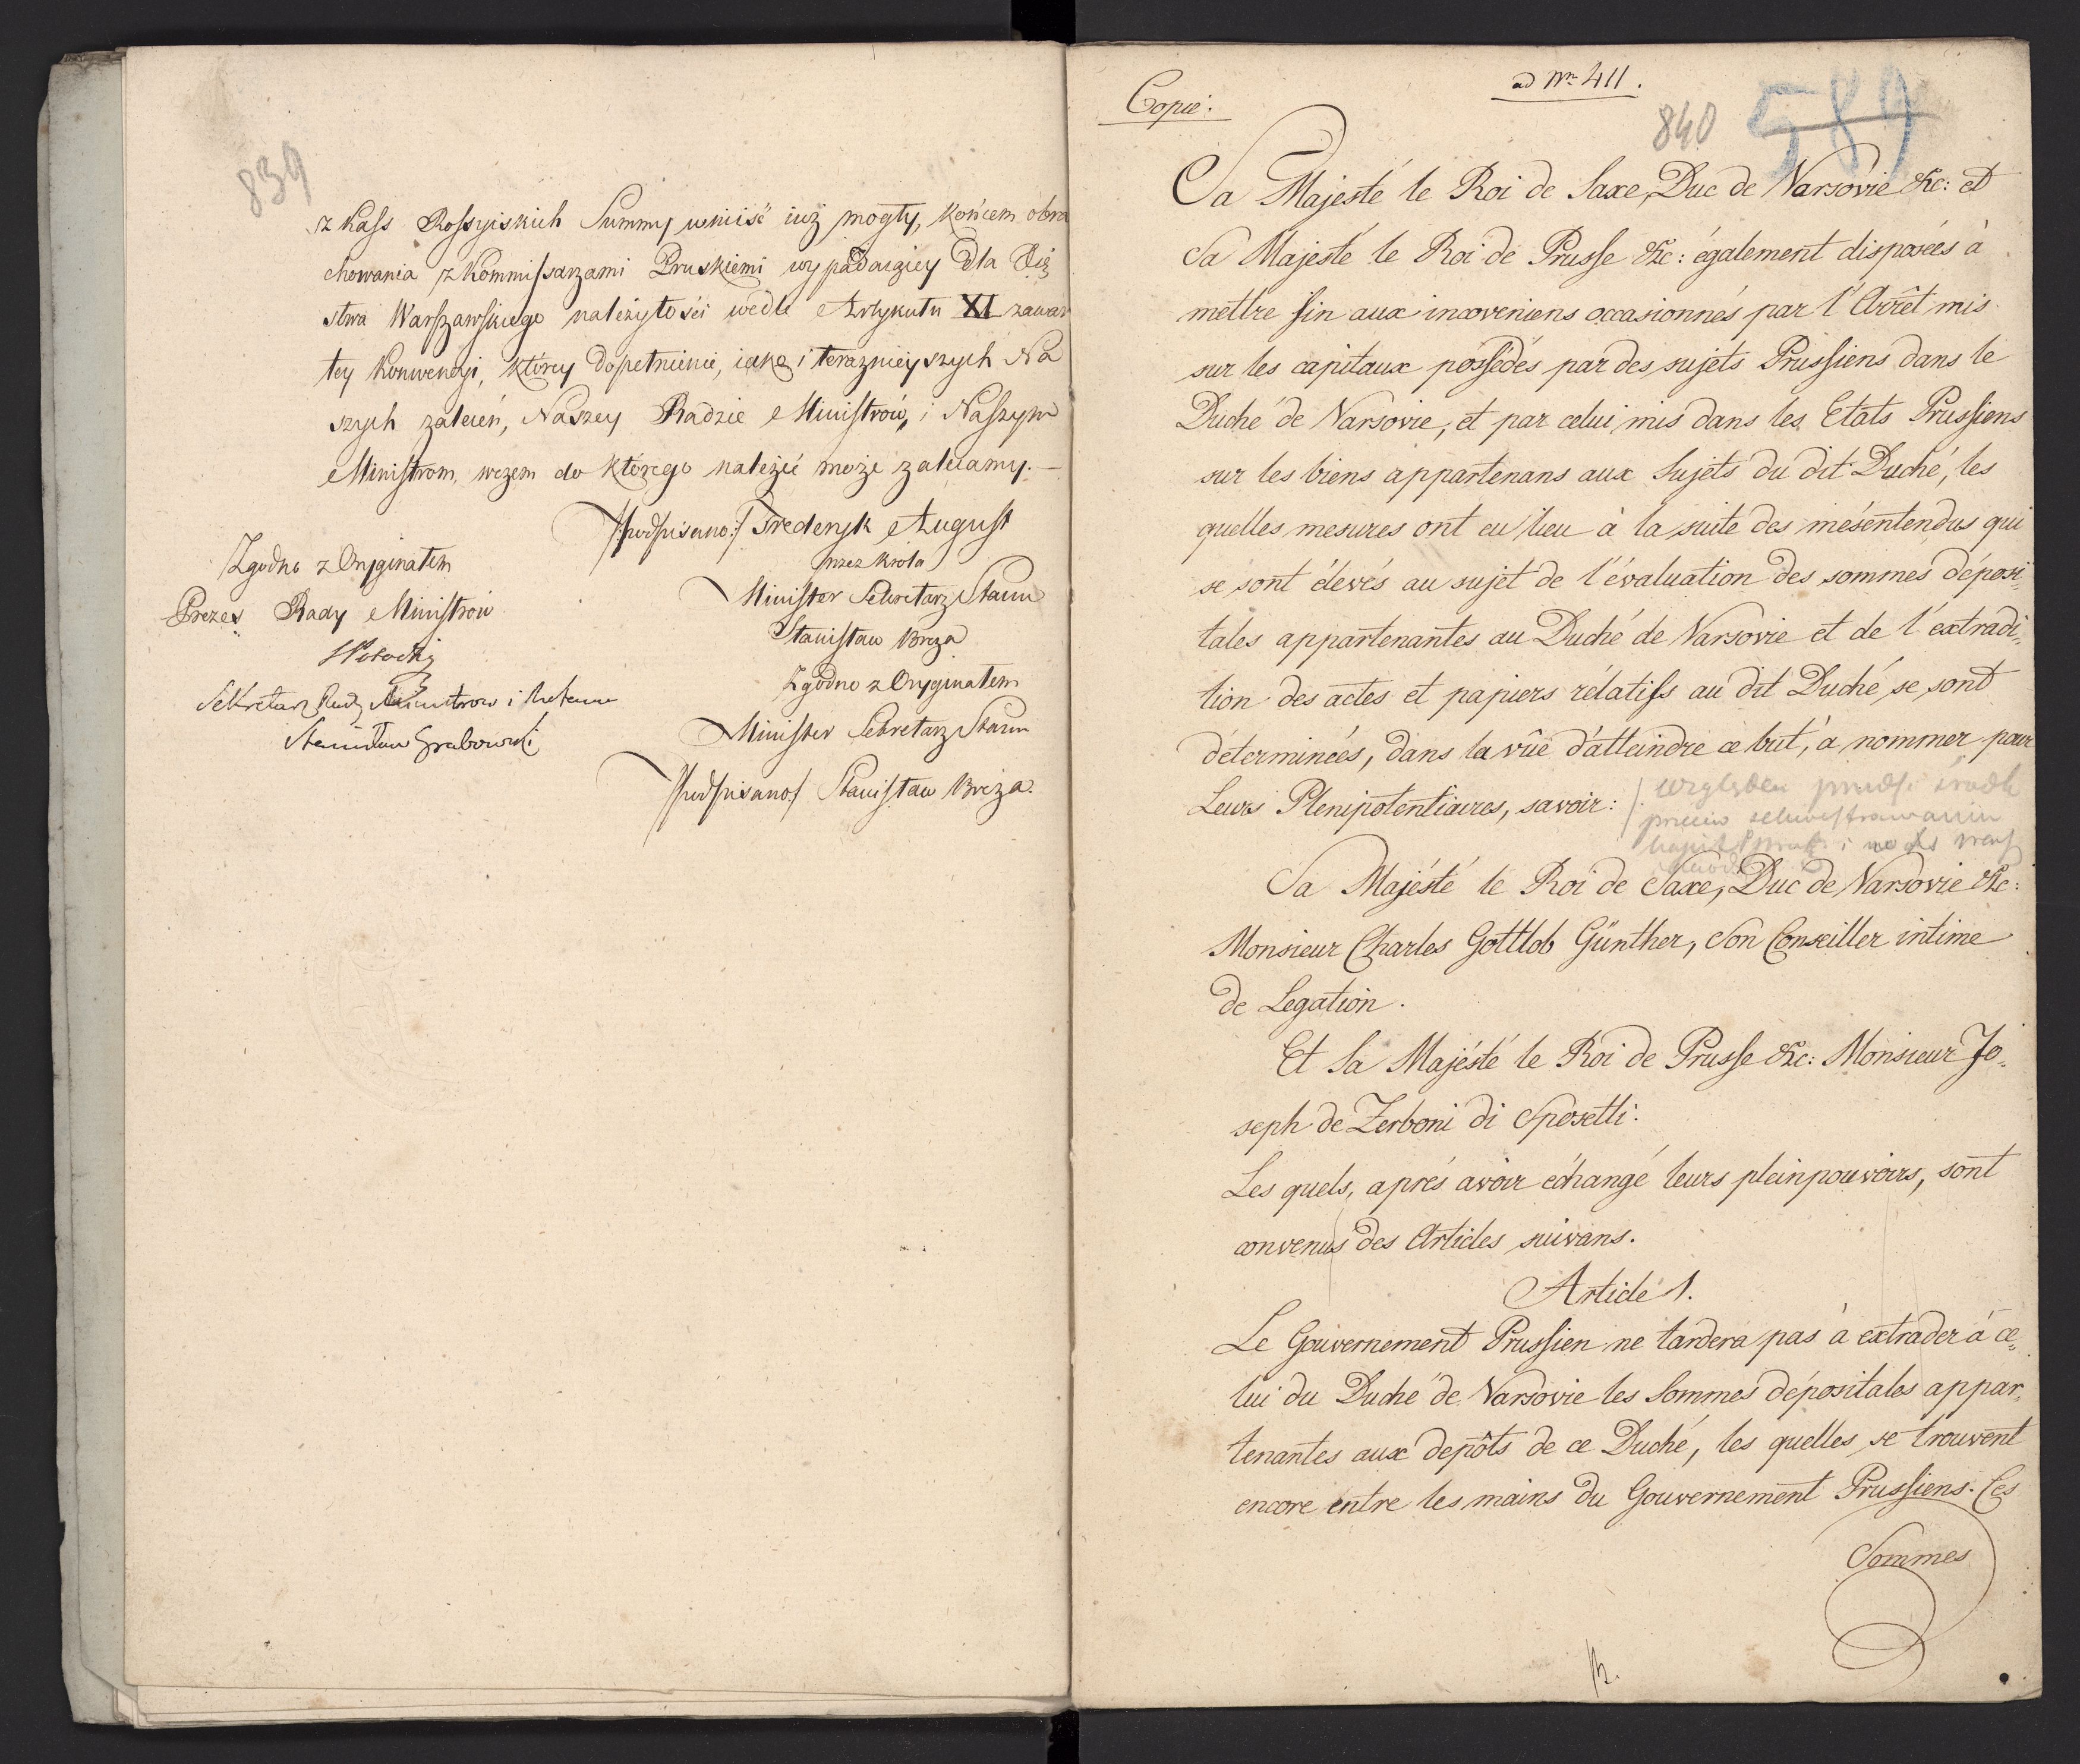 839
z Kass Rossyiskich Summy wniiść iuż mogły, końcem obra
chowania z Kommissarzami Pruskiemi wypadaiącey dla Xię
stwa Warszawskiego należytości wedle Artykułu XI zawar
tey Konwencyi, którey dopełnienie, iako i teraznieyszych Na
szych zaleceń, Naszey Radzie Ministrów, i Naszym
Ministrom, wczem do którego należeć może zalecamy. —
/:podpisano:/ Frederyk August
przez Króla
Minister Sekretarz Stanu
Stanisław Breza
Zgodno z Oryginałem
Minister Sekretarz Stanu
/:podpisano:/ Stanisław Breza.
Zgodno z Oryginałem
Prezes Rady Ministrów
Sekretarz Rady Ministrow i
Stanisław Grabowski
Copie.
ad Nr. 411.
840 589
Sa Majesté le Roi de Saxe, Duc de Varsovie &c: et
Sa Majesté le Roi de Prusse &c: également disposées à
mettre fin aux inconveniens occasionnés par l'Arrêt mis
sur les capitaux possédés par des sujets Prussiens dans le
Duché de Varsovie, et par celui mis dans les Etats Prussiens
sur les biens appartenans aux Sujets du dit Duché, les
quelles mesures ont eu lieu à la suite des mésentendus qui
se sont élevés au sujet de l'évaluation des sommes déposi„
tales appartenantes au Duché de Varsovie et de l'extradi„
tion des actes et papiers rélatifs au dit Duché se sont
déterminées, dans la vûe d'atteindre ce but, à nommer pour
Leurs Plenipotentiaires, savoir:
Sa Majésté le Roi de Saxe, Duc de Varsovie &c:
Monsieur Charles Gottlob Günther, Son Conseiller intime
de Legation.
Et Sa Majésté le Roi de Prusse &c: Monsieur Jo„
seph de Zerboni di Sposetti.
Les quels, aprés avoir échangé leurs pleinpouvoirs, sont
convenus des Articles suivans.
Article 1.
Le Gouvernement Prussien ne tardera pas à extrader à ce„
lui du Duché de Varsovie les Sommes dépositales appar„
tenantes aux depôts de ce Duché, les quelles se trouvent
encore entre les mains du Gouvernement Prussiens. Ces
Sommes